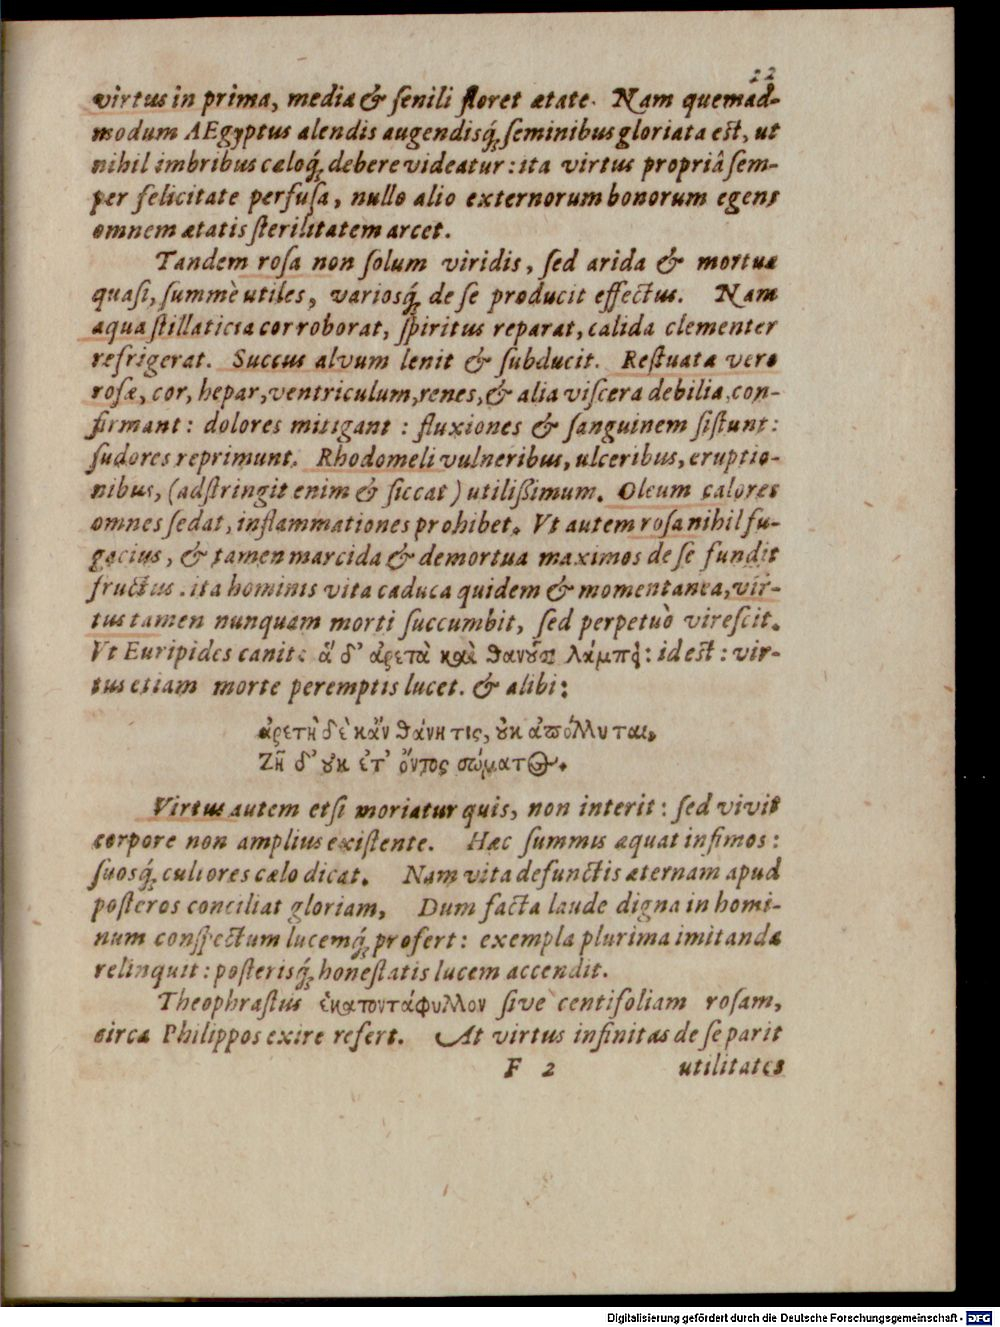 22
virtus in prima, media & senili floret ætate. Nam quemad-
modum AEgyptus alendis augendisq́; seminibus gloriata est, ut
nihil imbribus cæloq́; debere videatur: ita virtus propriâ sem-
per felicitate perfusa, nullo alio externorum bonorum egens
omnem ætatis sterilitatem arcet.
Tandem rosa non solum viridis, sed arida & mortua
quasi, summè utiles, variosq́; de se producit effectus. Nam
aqua stillaticia corroborat, spiritus reparat, calida clementer
refrigerat. Succus alvum lenit & subducit. Restuata vero
rosæ, cor, hepar, ventriculum, renes, & alia viscera debilia, con-
firmant: dolores mitigant: fluxiones & sanguinem sistunt:
sudores reprimunt. Rhodomeli vulneribus, ulceribus, eruptio-
nibus, (adstringit enim & siccat) utilißimum. Oleum calores
omnes sedat, inflammationes prohibet. Vt autem rosa nihil fu-
gacius, & tamen marcida & demortua maximos de se fundit
fructus. ita hominis vita caduca quidem & momentanea, vir-
tus tamen nunquam morti succumbit, sed perpetuò virescit.
Vt Euripides canit: ἁ δ’ ἀρετὰ καὶ θανοῦσι λάμπει: id est: vir-
tus etiam morte peremptis lucet. & alibi:
ἀρετὴ δὲ κἂν θάνη τις, οὐκ ἀπόλλυται,
Ζῆ δ’ οὐκ ἔτ’ ὄντος σώματος.
Virtus autem etsi moriatur quis, non interit: sed vivit
corpore non amplius existente. Hæc summis æquat infimos:
suosq́; cultores cælo dicat. Nam vita defunctis æternam apud
posteros conciliat gloriam, Dum facta laude digna in homi-
num conspectum lucemq́; profert: exempla plurima imitanda
relinquit: posterisq́; honestatis lucem accendit.
Theophrastus ἑκατοντάφυλλον sive centifoliam rosam,
circa Philippos exire refert. At virtus infinitas de se parit
F 2 utilitates
Digitalisierung gefördert durch die Deutsche Forschungsgemeinschaft - DFG